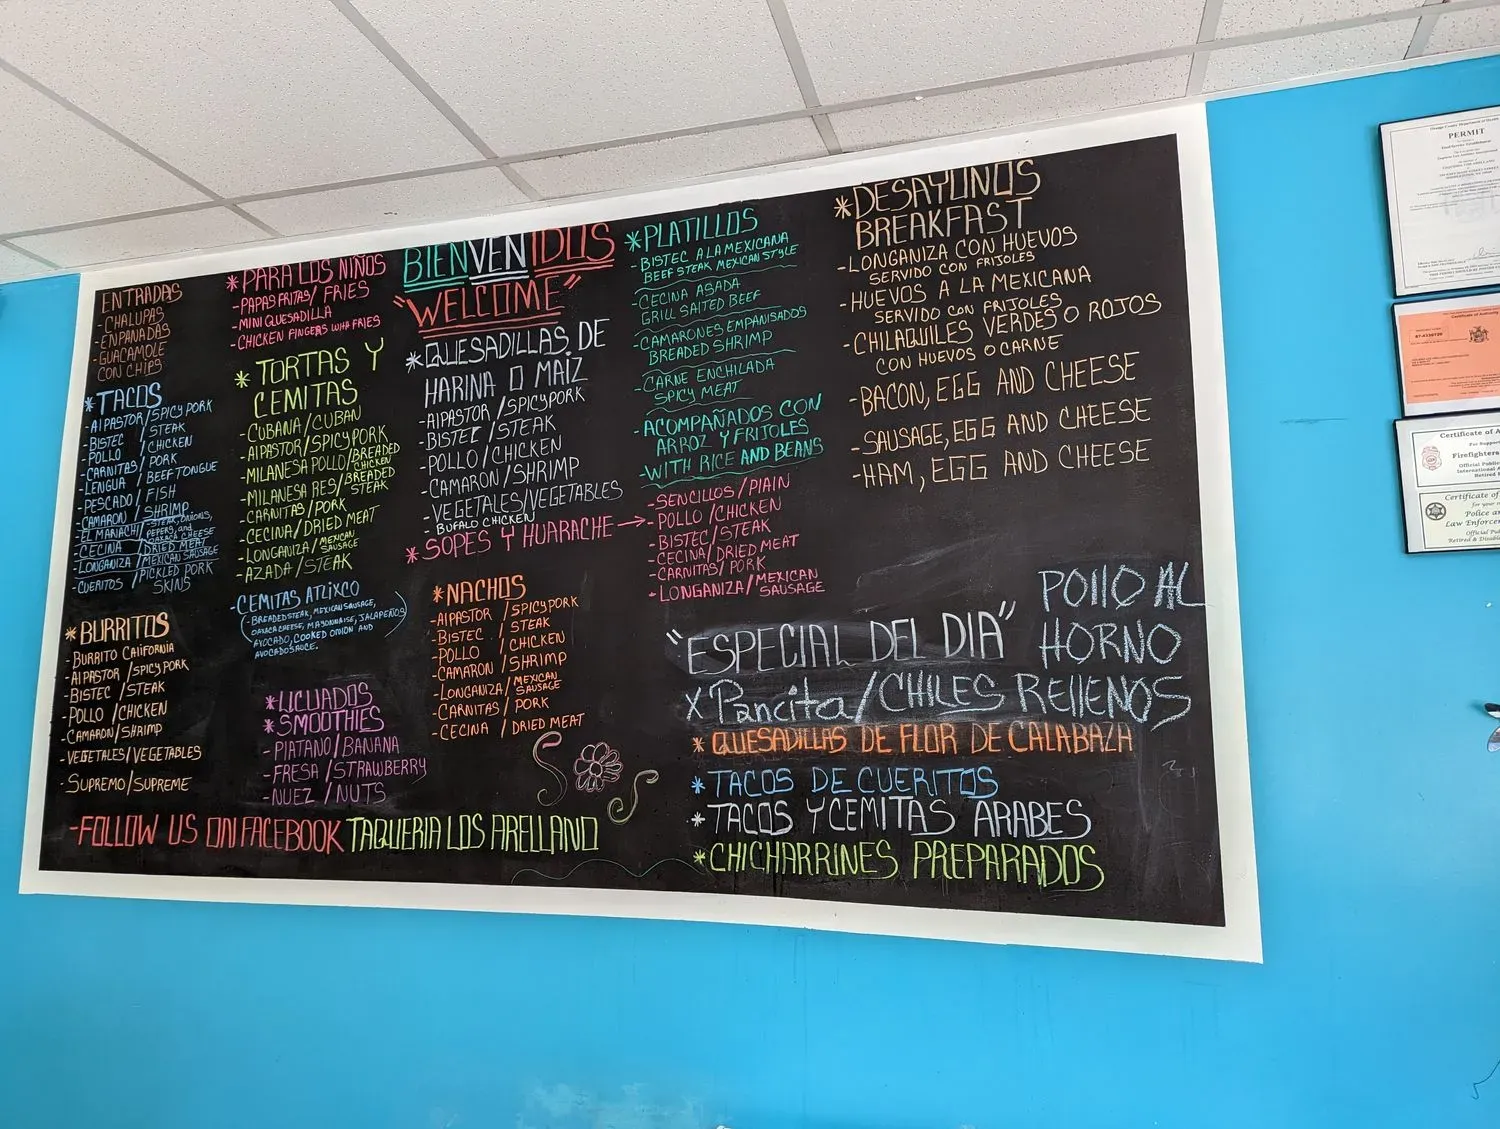 ENTRADAS
-CHALUPAS
-ENPANADAS
-GUACAMOLE
CON CHIPS
*TACOS
-AlPASTOR/SPICY PORK
-BISTEC /STEAK
-POLLO /CHICKEN
-CARNITAS/PORK
-LENGUA /BEEF TONGUE
-PESCADO/FISH
-CAMARON/SHRIMP
-EL MARIACHI/STEAK, ONIONS,
PEPERS, and
OAXACA CHEESE
-CECINA /DRIED MEAT
-LONGANIZA/MEXICAN SAUSAGE
-CUERITOS /PICKLED PORK
SKINS
*BURRITOS
-BURRITO CAlIFORNIA
-AlPASTOR/SPICY PORK
-BISTEC /STEAK
-POLLO /CHICKEN
-CAMARON/SHRIMP
-VEGETALES/VEGETABLES
-SUPREMO/SUPREME
*PARA LOS NIÑOS
-PAPAS FRITAS/FRIES
-MINI QUESADILLA
-CHICKEN FINGERS WITH FRIES
*TORTAS Y
CEMITAS
-CUBANA/CUBAN
-AlPASTOR/SPICY PORK
-MILANESA POLLO/BREADED
CHICKEN
-MILANESA RES/BREADED
STEAK
-CARNITAS/PORK
-CECINA/DRIED MEAT
-LONGANIZA/MEXICAN
SAUSAGE
-AZADA/STEAK
-CEMITAS ATLIXCO
(-BREADED STEAK, MEXICAN SAUSAGE,
OAXACA CHEESE, MAYONNAISE, JALAPEÑOS
AVOCADO, COOKED ONION AND
AVOCADO SAUCE.)
*LICUADOS
*SMOOTHIES
-PlATANO/BANANA
-FRESA/STRAWBERRY
-NUEZ/NUTS
BIENVENIDOS
"WELCOME"
*QUESADILLAS DE
HARINA O MAÍZ
-AlPASTOR/SPICY PORK
-BISTEC/STEAK
-POLLO/CHICKEN
-CAMARON/SHRIMP
-VEGETALES/VEGETABLES
-BUFALO CHICKEN
*SOPES Y HUARACHE →
-SENCILLOS/PlAIN
-POLLO/CHICKEN
-BISTEC/STEAK
-CECINA/DRIED MEAT
-CARNITAS/PORK
-LONGANIZA/MEXICAN
SAUSAGE
*NACHOS
-AlPASTOR /SPICY PORK
-BISTEC /STEAK
-POLLO /CHICKEN
-CAMARON /SHRIMP
-LONGANIZA/MEXICAN
SAUSAGE
-CARNITAS /PORK
-CECINA /DRIED MEAT
-FOLLOW US ON FACEBOOK TAQUERIA LOS ARELLANO
*PLATILLOS
-BISTEC A LA MEXICANA
BEEF STEAK MEXICAN STYLE
-CECINA ASADA
GRILL SALTED BEEF
-CAMARONES EMPANISADOS
BREADED SHRIMP
-CARNE ENCHILADA
SPICY MEAT
-ACOMPAÑADOS CON
ARROZ Y FRIJOLES
-WITH RICE AND BEANS
*DESAYUNOS
BREAKFAST
-LONGANIZA CON HUEVOS
SERVIDO CON FRIJOLES
-HUEVOS A LA MEXICANA
SERVIDO CON FRIJOLES
-CHILAQUILES VERDES O ROJOS
CON HUEVOS O CARNE
-BACON, EGG AND CHEESE
-SAUSAGE, EGG AND CHEESE
-HAM, EGG AND CHEESE
"ESPECIAL DEL DIA"
POllO Al
HORNO
x Pancita/CHILES REllENOS
*QUESADILLAS DE FLOR DE CALABAZA
*TACOS DE CUERITOS
*TACOS Y CEMITAS ARABES
*CHICHARRINES PREPARADOS
PERMIT
Certificate of Authority
Certificate of
Firefighters
Certificate of
Police an
Law Enforce
Retired & Disabl